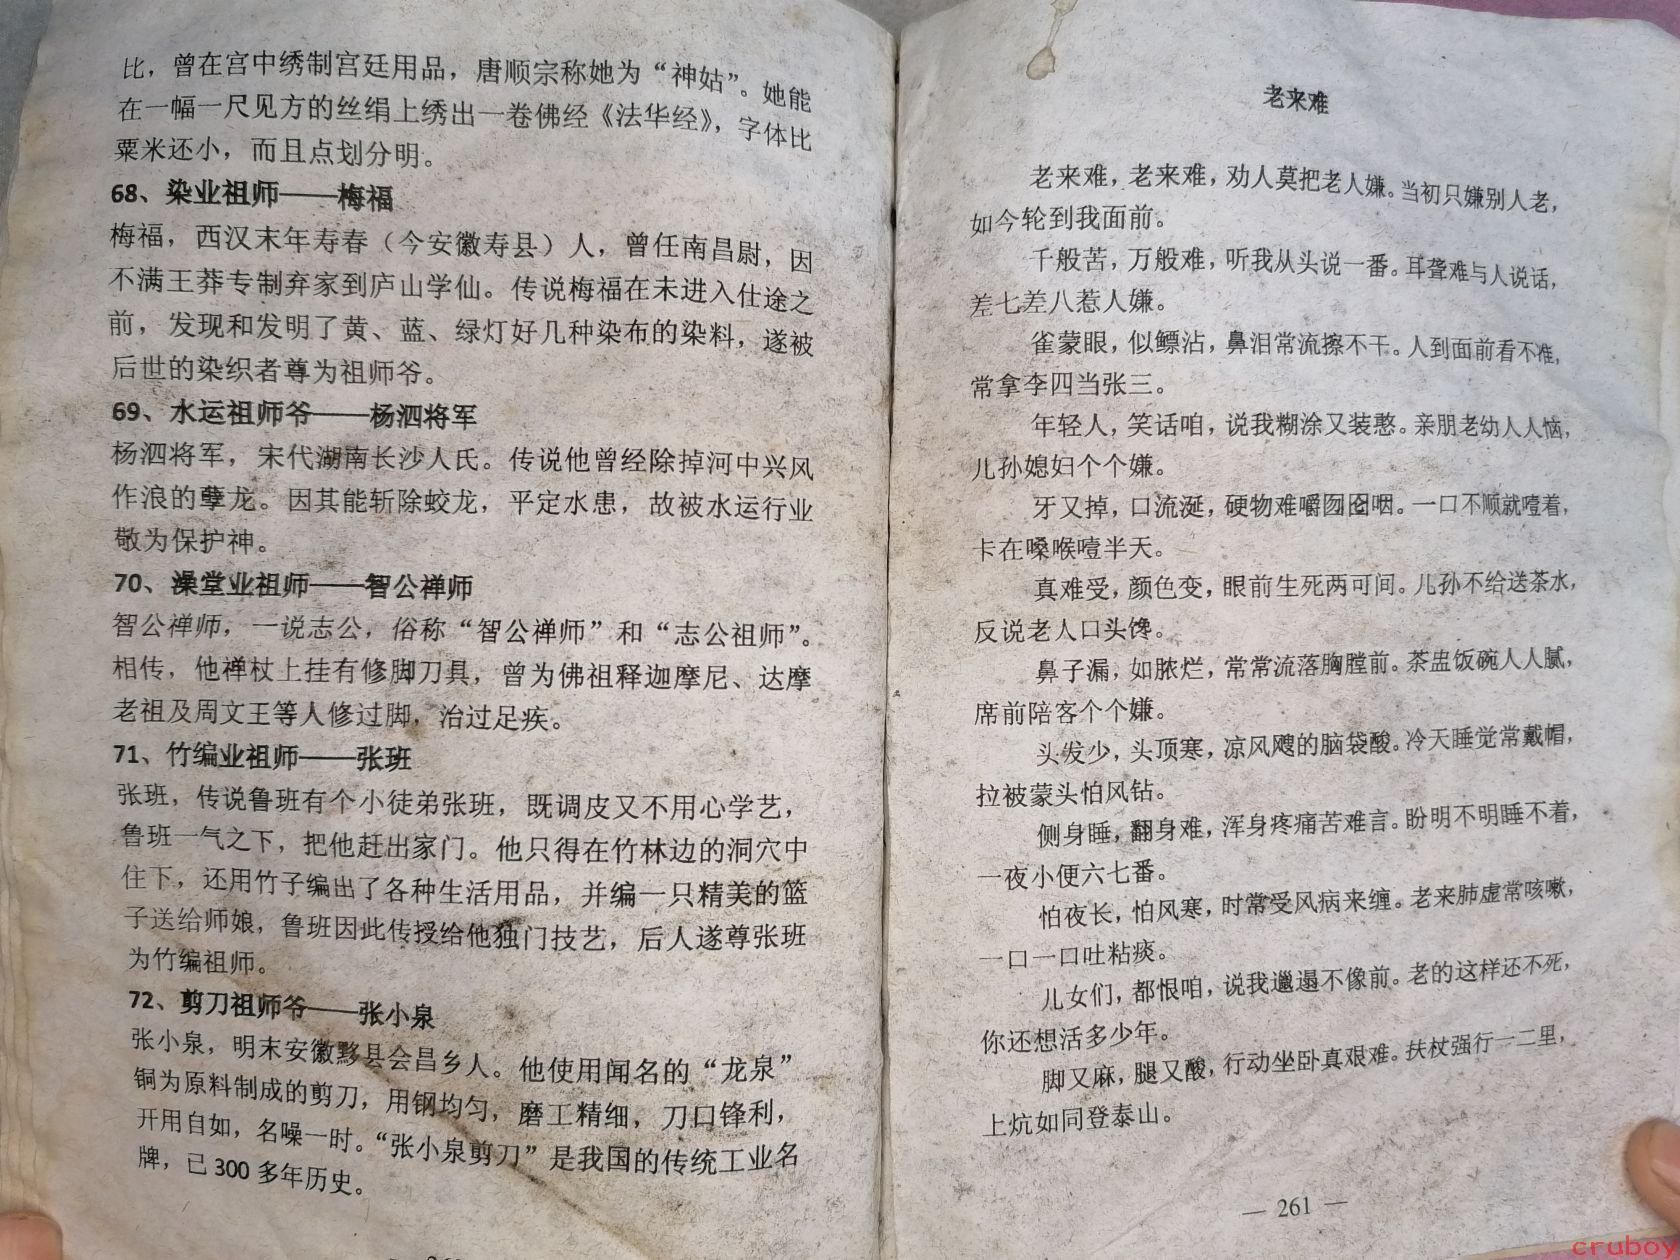 比，曾在宫中绣制宫廷用品，唐顺宗称她为“神姑”。她能
在一幅一尺见方的丝绢上绣出一卷佛经《法华经》，字体比
粟米还小，而且点划分明。
68、染业祖师——梅福
梅福，西汉末年寿春（今安徽寿县）人，曾任南昌尉，因
不满王莽专制弃家到庐山学仙。传说梅福在未进入仕途之
前，发现和发明了黄、蓝、绿灯好几种染布的染料，遂被
后世的染织者尊为祖师爷。
69、水运祖师爷——杨泗将军
杨泗将军，宋代湖南长沙人氏。传说他曾经除掉河中兴风
作浪的孽龙。因其能斩除蛟龙，平定水患，故被水运行业
敬为保护神。
70、澡堂业祖师——智公禅师
智公禅师，一说志公，俗称“智公禅师”和“志公祖师”。
相传，他禅杖上挂有修脚刀具，曾为佛祖释迦摩尼、达摩
老祖及周文王等人修过脚，治过足疾。
71、竹编业祖师——张班
张班，传说鲁班有个小徒弟张班，既调皮又不用心学艺，
鲁班一气之下，把他赶出家门。他只得在竹林边的洞穴中
住下，还用竹子编出了各种生活用品，并编一只精美的篮
子送给师娘，鲁班因此传授给他独门技艺，后人遂尊张班
为竹编祖师。
72、剪刀祖师爷——张小泉
张小泉，明末安徽黟县会昌乡人。他使用闻名的“龙泉”
铜为原料制成的剪刀，用钢均匀，磨工精细，刀口锋利，
开用自如，名噪一时。“张小泉剪刀”是我国的传统工业名
牌，已300多年历史。
老来难
老来难，老来难，劝人莫把老人嫌。当初只嫌别人老，
如今轮到我面前。
千般苦，万般难，听我从头说一番。耳聋难与人说话，
差七差八惹人嫌。
雀蒙眼，似鳔沾，鼻泪常流擦不干。人到面前看不准，
常拿李四当张三。
年轻人，笑话咱，说我糊涂又装憨。亲朋老幼人人恼，
儿孙媳妇个个嫌。
牙又掉，口流涎，硬物难嚼囫囵咽。一口不顺就噎着，
卡在嗓喉噎半天。
真难受，颜色变，眼前生死两可间。儿孙不给送茶水，
反说老人口头馋。
鼻子漏，如脓烂，常常流落胸膛前。茶盅饭碗人人腻，
席前陪客个个嫌。
头发少，头顶寒，凉风飕的脑袋酸。冷天睡觉常戴帽，
拉被蒙头怕风钻。
侧身睡，翻身难，浑身疼痛苦难言。盼明不明睡不着，
一夜小便六七番。
怕夜长，怕风寒，时常受风病来缠。老来肺虚常咳嗽，
一口一口吐粘痰。
儿女们，都恨咱，说我邋遢不像前。老的这样还不死，
你还想活多少年。
脚又麻，腿又酸，行动坐卧真艰难。扶杖强行一二里，
上炕如同登泰山。
— 261 —
cruboy